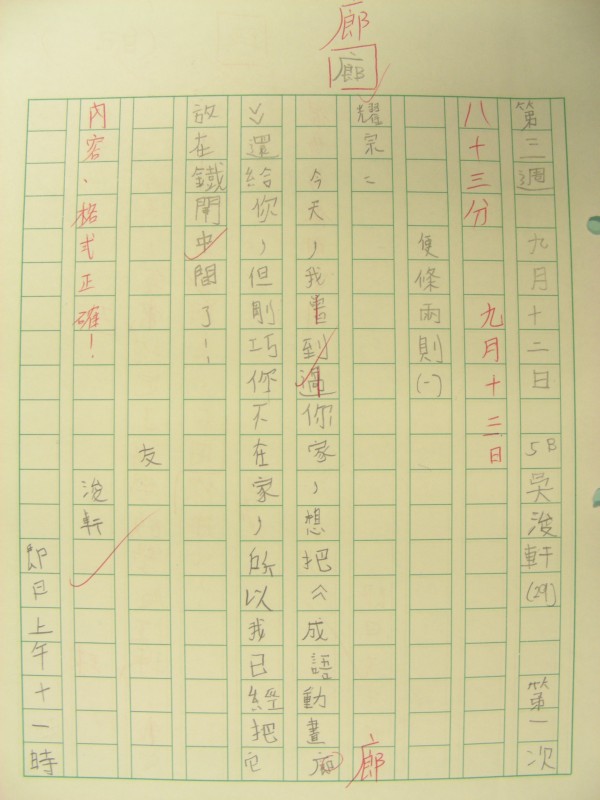 廊
廊
第三週 九月十二日 5B 吳浚軒(29) 第一次
八十三分 九月十三日
便條兩則(一)
耀宗：
今天，我到過你家，想把《成語動畫廊
廊
》還給你，但剛巧你不在家，所以我已經把它
放在鐵閘中間了！
友
內容、格式正確！
浚軒
即日上午十一時